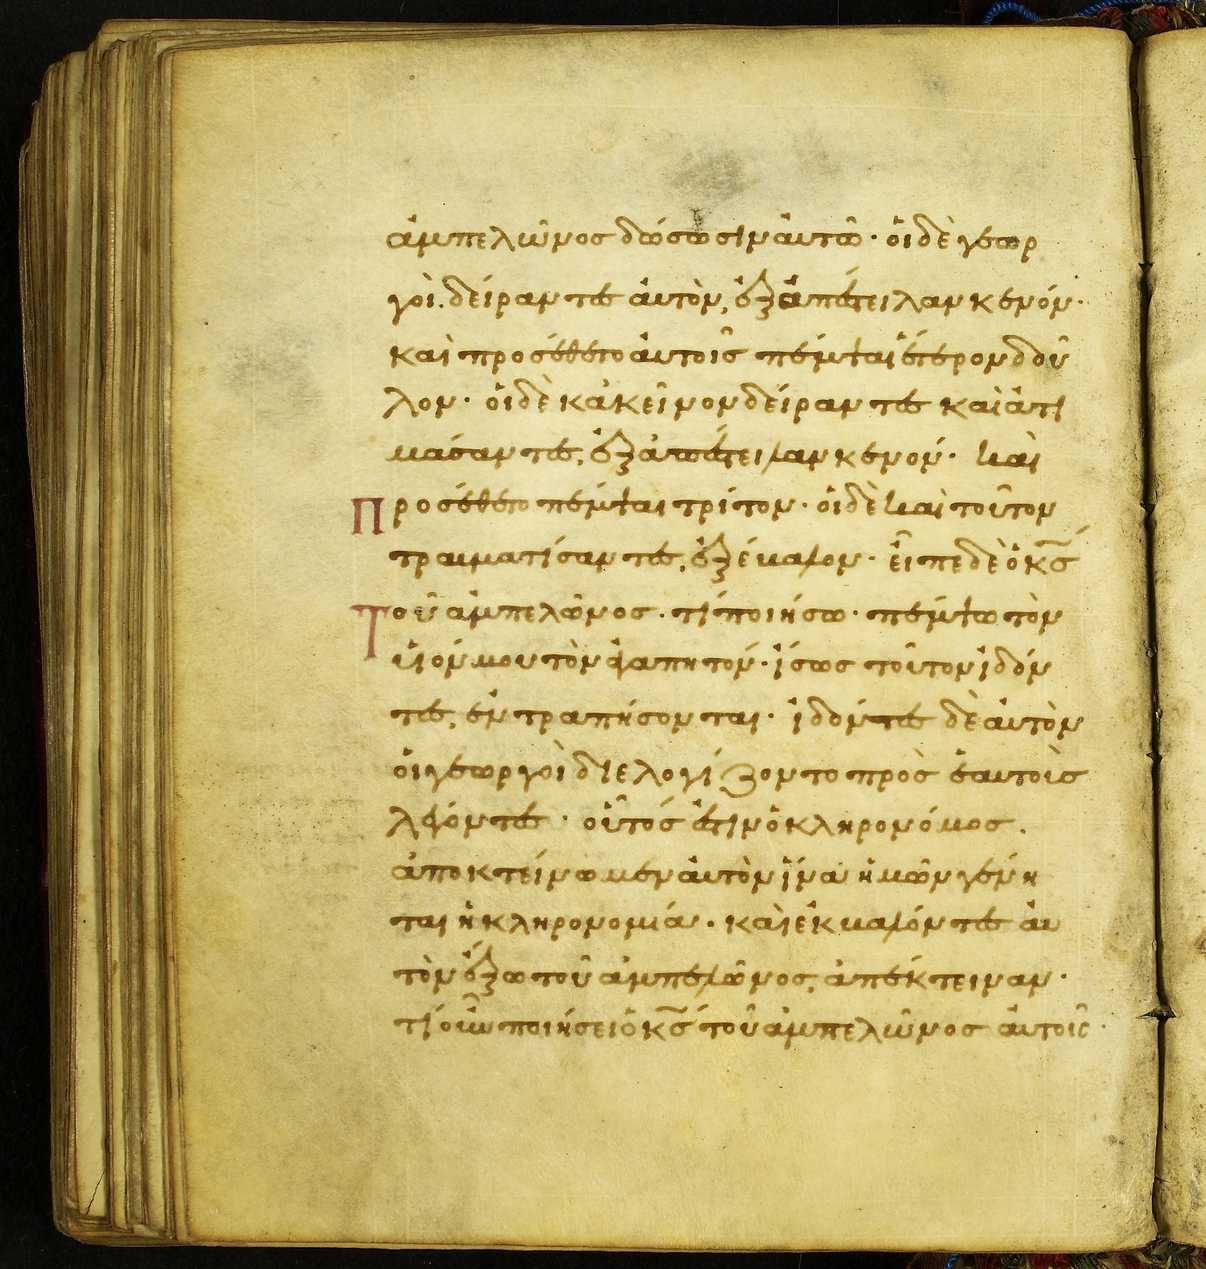 ἀμπελῶνος δώσωσιν αὐτῶ· οἱ δὲ γεωρ
γοὶ. δείραντες αὐτὸν, ἐξαπέστειλαν κενόν·
καὶ προσέθετο αὐτοῖς πέμψαι ἕτερον δοῦ
λον· οἱ δὲ κἀκεῖνον δείραντες καὶ ἀτι
μάσαντες, ἐξαπέστειλαν κενόν· καὶ
προσέθετο πέμψαι τρίτον· οἱ δὲ καὶ τοῦτον
τραυματίσαντες, ἐξέβαλον· εἶπε δὲ ὁ κ̅ς̅
Τοῦ ἀμπελῶνος· τί ποιήσω· πέμψω τὸν
υἱόν μου τὸν ἀγαπητόν· ἴσως τοῦτον ἰδόν
τες, ἐντραπήσονται· ἰδόντες δὲ αὐτὸν
οἱ γεωργοὶ διελογίζοντο πρὸς ἑαυτοὺς
λέγοντες· οὗτός ἐστιν ὁ κληρονόμος.
ἀποκτείνωμεν αὐτὸν ἵνα ἡμῶν γένη
ται ἡ κληρονομία· καὶ ἐκβαλόντες αὐ
τὸν ἔξω τοῦ ἀμπελῶνος, ἀπέκτειναν·
τί οὖν ποιήσει ὁ κ̅ς̅ τοῦ ἀμπελῶνος αὐτοῖς·